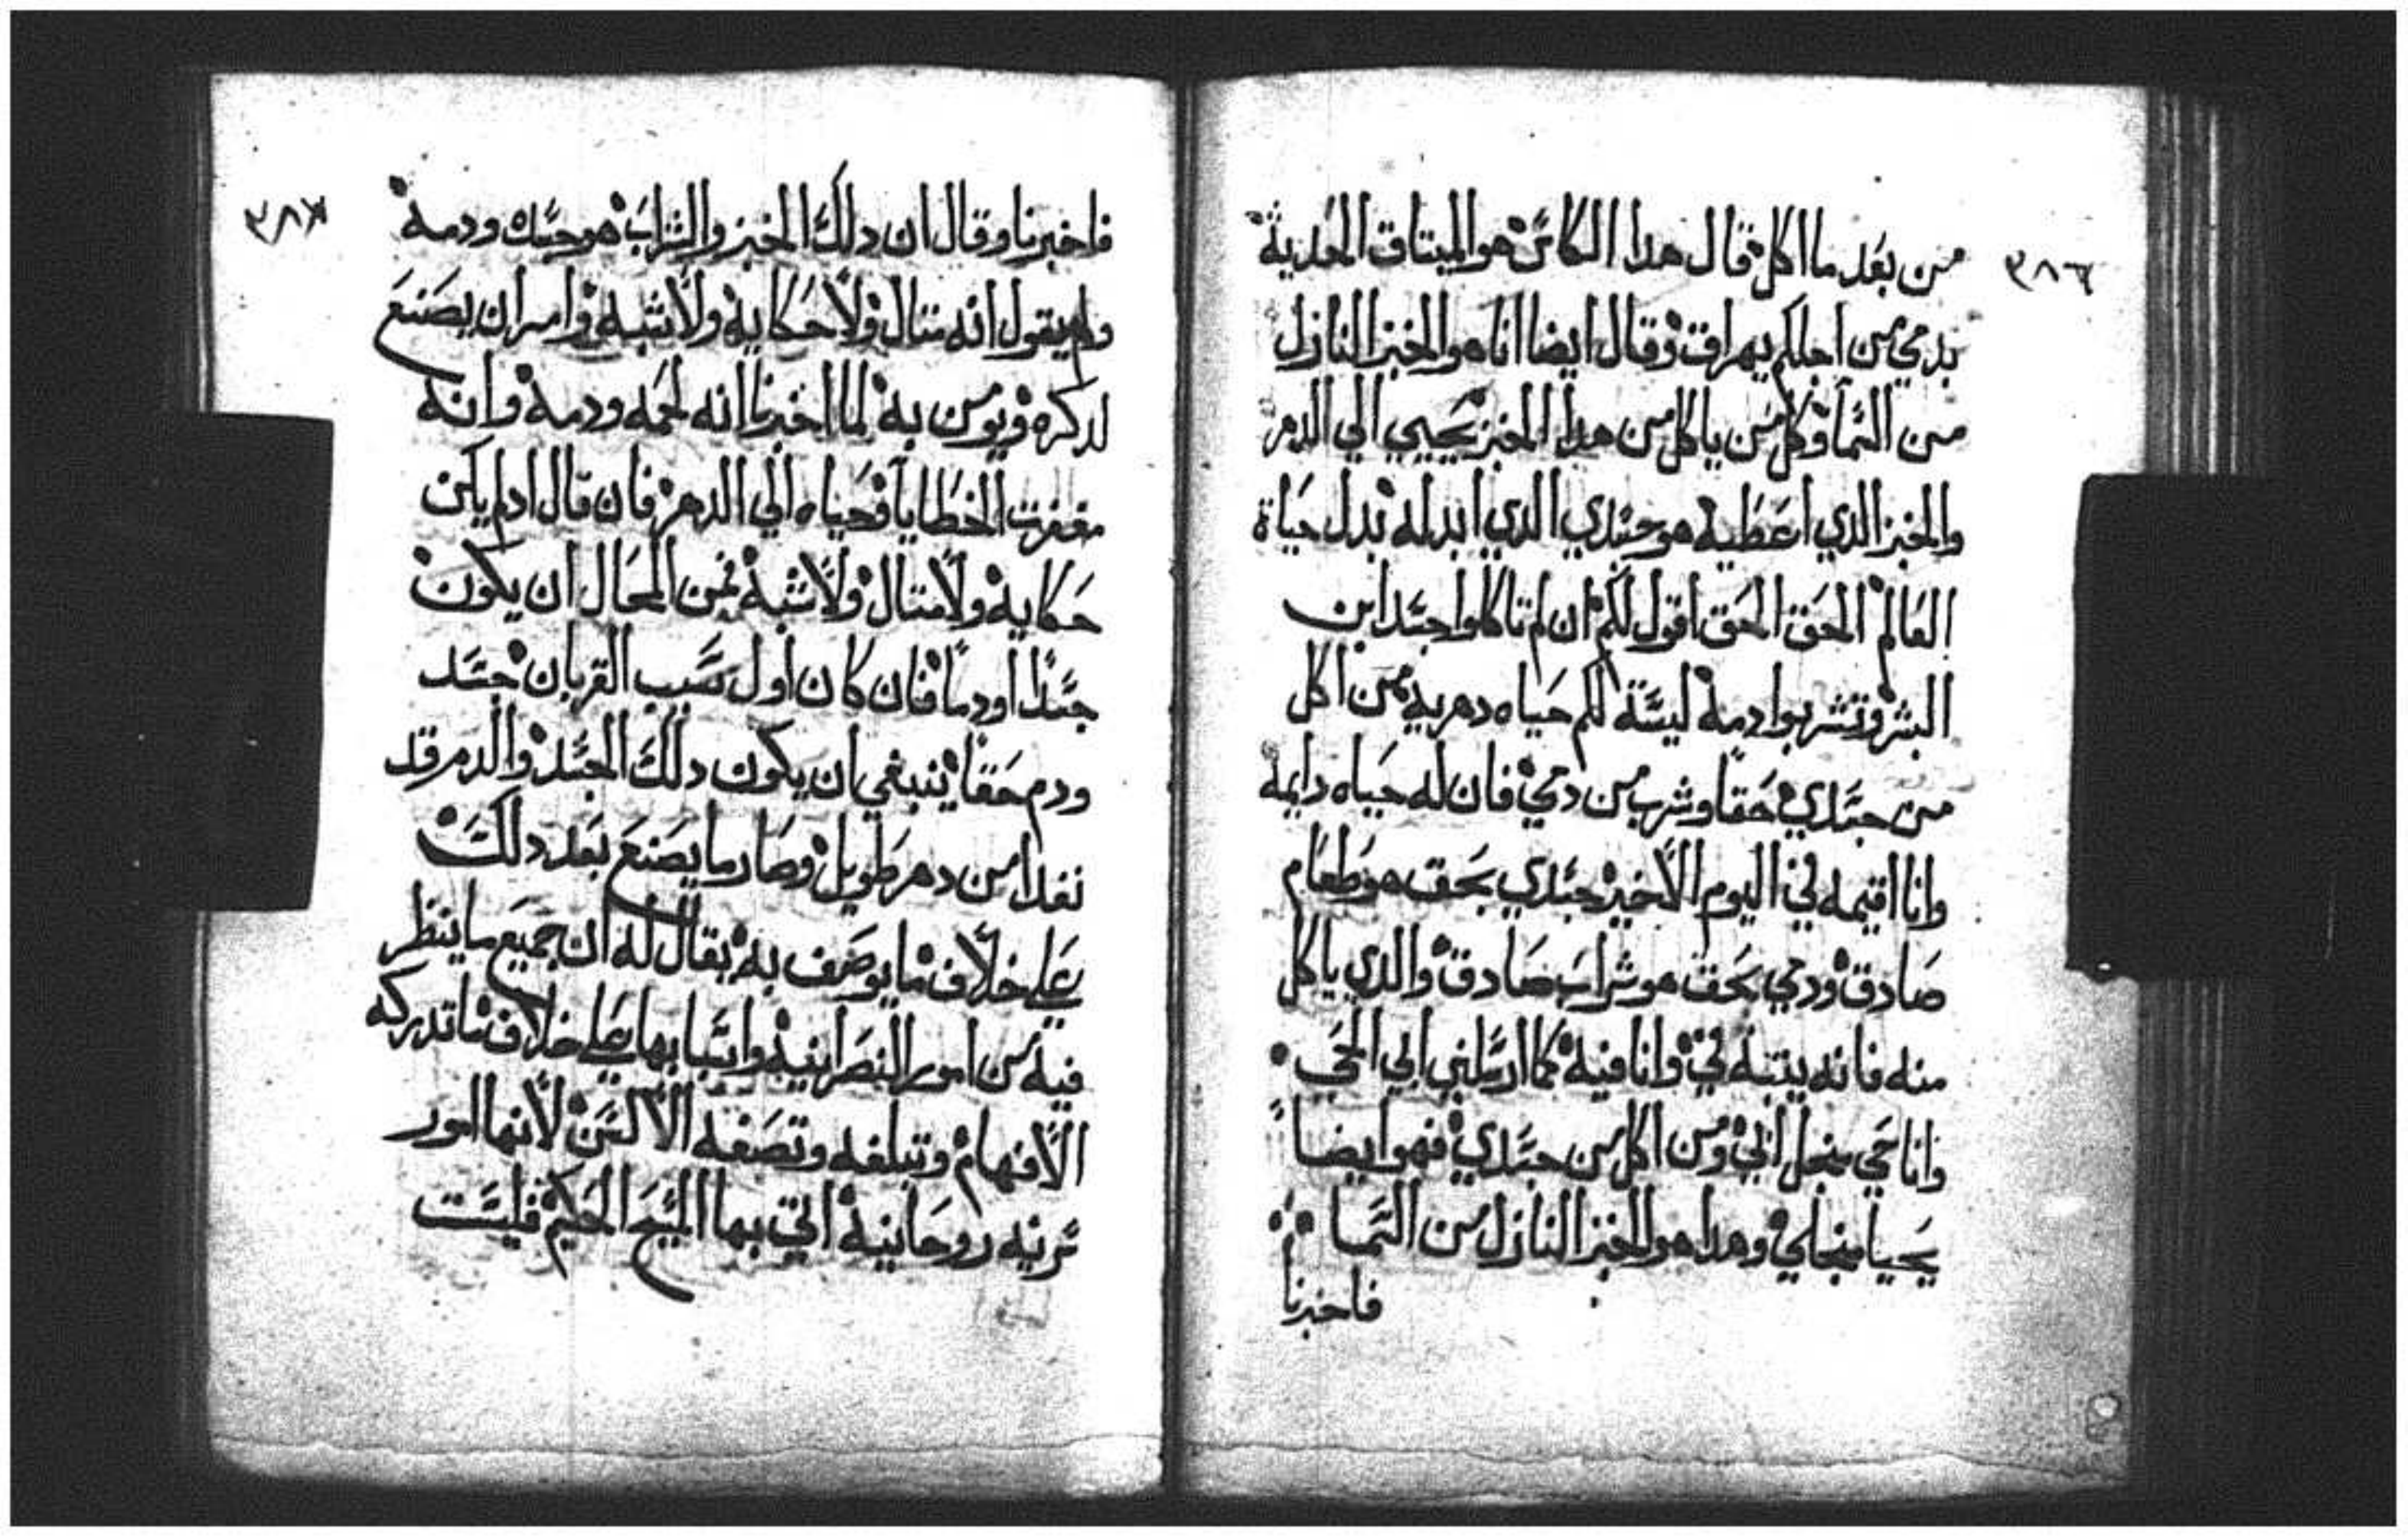 ٣٨٦
من بعد ما اكل قال هدا الكاس هو الميتاق الجديد
بدمي من اجلكم يهراق وقال ايضا انا هو الخبز النازل
من السما وكل من ياكل من هدا الخبز يحيي الي الدهر
والخبز الدي اعطيه هو جسدي الدي ابدله بدل حياة
العالم الحق الحق اقول لكم ان لم تاكلوا جسد ابن
البشر وتشربوا دمه ليسة لكم حياه دهريه من اكل
من جسدي حقا وشرب من دمي فان له حياه دايمه
وانا اقيمه في اليوم الاخير جسدي بحق هو طعام
صادق ودمي بحق هو شراب صادق والدي ياكل
منه فانه يتبت في وانا فيه كما ارسلني ابي الحي
وانا حي منجل ابي ومن اكل من جسدي فهو ايضاً
يحيا منجلي وهدا هو الخبز النازل من السما
فاخبرنا
٣٨٧
فاخبرنا وقال ان دلك الخبز والشراب هو جسده ودمه
ولم يقول انه متال ولا حكايه ولا شبه وامر ان يصنع
لدكره ويومن به لما اخبرنا انه لحمه ودمه وانه
مغفرت الخطايا وحياه الي الدهر فان قال ادم يكن
حكايه ولا متال ولا شبه فمن المحال ان يكون
جسداً او دماً فان كان اول سبب القربان جسد
ودم حقاً ينبغي ان يكون دلك الجسد والدم قد
نفدا من دهر طويل وصار ما يصنع بعد دلك
علي خلاف ما يوصف به يقال له ان جميع ما ينظر
فيه من امور النصرانيه واسبابها علي خلاف ما تدركه
الافهام وتبلغه وتصفه الالسن لانها امور
سريه روحانيه اتي بها المسيح الحكيم فليست